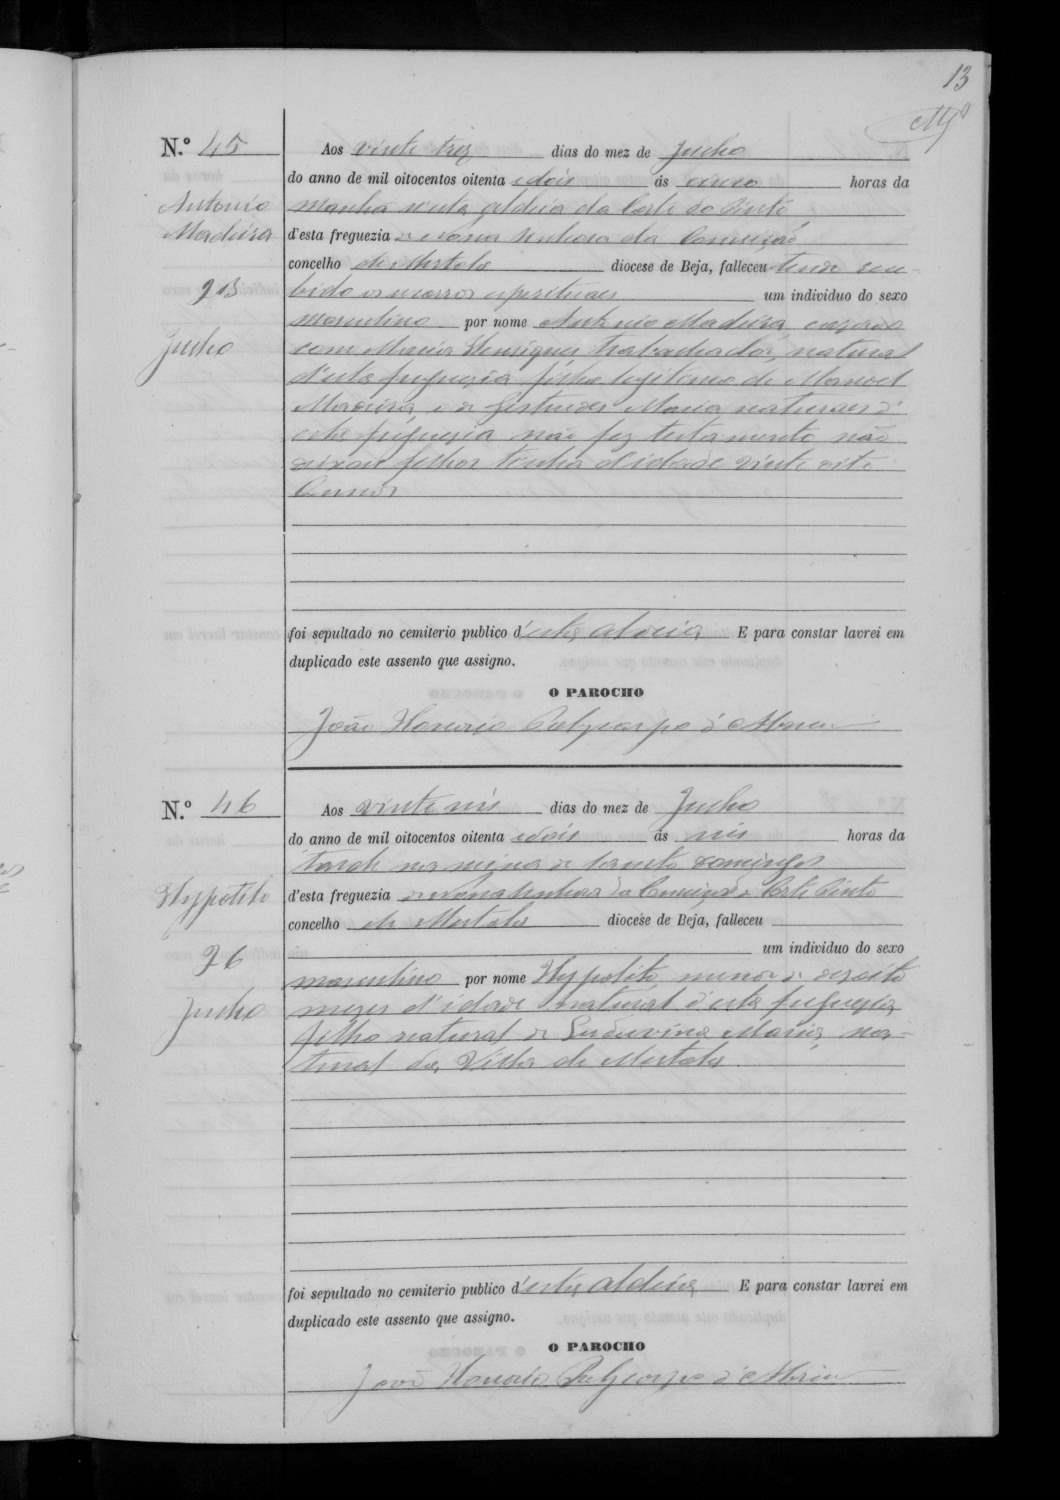 13
N.º 45
Antonio
Madeira
23
Junho
Aos vinte trez dias do mez de Junho
do anno de mil oitocentos oitenta e dois ás cinco horas da
manhã n'esta aldeia da Corte do Pinto
d'esta freguezia de Nossa Senhora da Conceição
concelho de Mertola diocese de Beja, falleceu tendo rece-
bido os socorros espirituaes um individuo do sexo
masculino por nome Antonio Madeira, casado
com Maria Henriques trabalhador, natural
d'esta freguezia filho legitimo de Manoel
Madeira, e de Gertrudes Maria naturaes d'
esta freguezia não fez testamento não
deixou filhos tinha de idade vinte oito
annos
foi sepultado no cemiterio publico d'esta aldeia E para constar lavrei em
duplicado este assento que assigno.
O PAROCHO
João Honorio Polycarpo d'
N.º 46
Hyppolito
26
Junho
Aos vinte seis dias do mez de Junho
do anno de mil oitocentos oitenta e dois ás seis horas da
tarde na mina de São Domingos
d'esta freguezia de Nossa Senhora da Conceição da Corte Pinto
concelho de Mertola diocese de Beja, falleceu
um individuo do sexo
masculino por nome Hyppolito menor de dezoito
mezes d'idade natural d'esta freguezia
filho natural de Luduvina Maria, na-
tural da Villa de Mertola.
foi sepultado no cemiterio publico d'esta aldeia E para constar lavrei em
duplicado este assento que assigno.
O PAROCHO
João Honorio Polycarpo d'